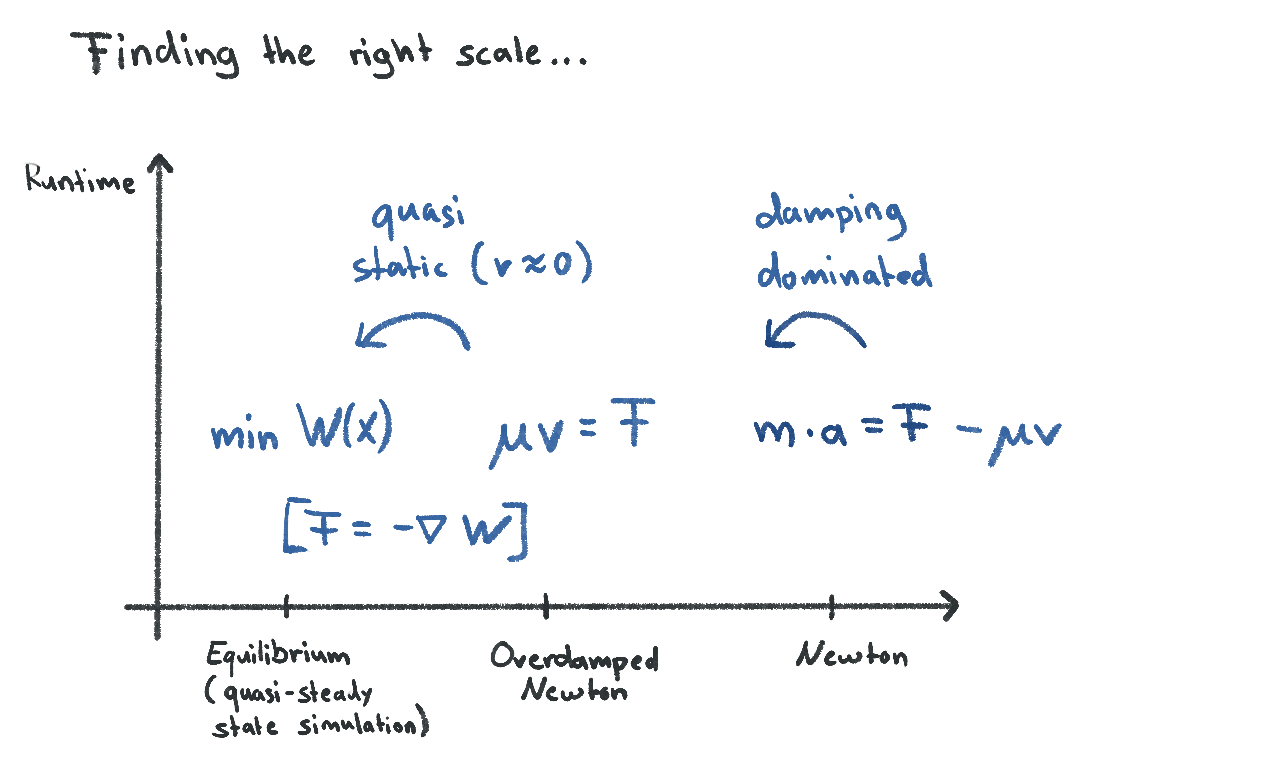 Finding the right scale...
Runtime
quasi
static (v ≈ 0)
damping
dominated
min W(x)
μv = F
m·a = F - μv
[F = -∇ W]
Equilibrium
(quasi-steady
state simulation)
Overdamped
Newton
Newton